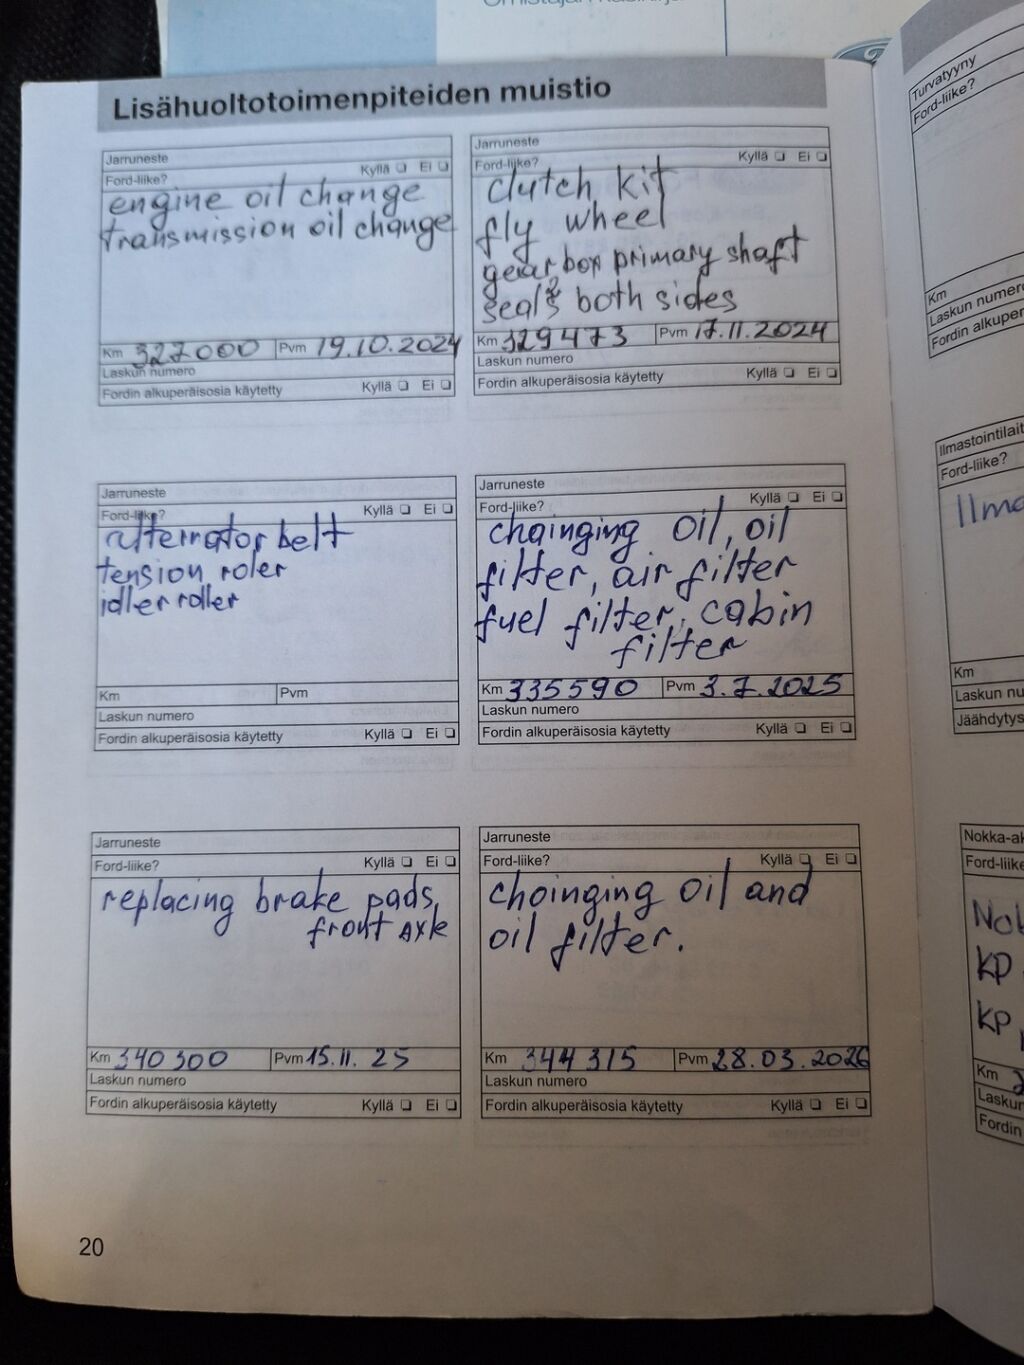 Lisähuoltotoimenpiteiden muistio
Jarruneste
Ford-liike? Kyllä ❏ Ei ❏
engine oil change
transmission oil change
Km 327000 Pvm 19.10.2024
Laskun numero
Fordin alkuperäisosia käytetty Kyllä ❏ Ei ❏
Jarruneste
Ford-liike? Kyllä ❏ Ei ❏
clutch kit
fly wheel
gear box primary shaft
seals both sides
Km 329473 Pvm 17.11.2024
Laskun numero
Fordin alkuperäisosia käytetty Kyllä ❏ Ei ❏
Jarruneste
Ford-liike? Kyllä ❏ Ei ❏
alternator belt
tension roler
idler roller
Km Pvm
Laskun numero
Fordin alkuperäisosia käytetty Kyllä ❏ Ei ❏
Jarruneste
Ford-liike? Kyllä ❏ Ei ❏
chainging oil, oil
filter, air filter
fuel filter, cabin
filter
Km 335590 Pvm 3.7.2025
Laskun numero
Fordin alkuperäisosia käytetty Kyllä ❏ Ei ❏
Jarruneste
Ford-liike? Kyllä ❏ Ei ❏
replacing brake pads,
front axle
Km 340300 Pvm 15.11.25
Laskun numero
Fordin alkuperäisosia käytetty Kyllä ❏ Ei ❏
Jarruneste
Ford-liike? Kyllä ❏ Ei ❏
chainging oil and
oil filter.
Km 344315 Pvm 28.03.2026
Laskun numero
Fordin alkuperäisosia käytetty Kyllä ❏ Ei ❏
20
Turvatyyny
Ford-liike?
Km
Laskun numero
Ford-liike?
Km
Ford-liike
KP
KP
Km
Fordin